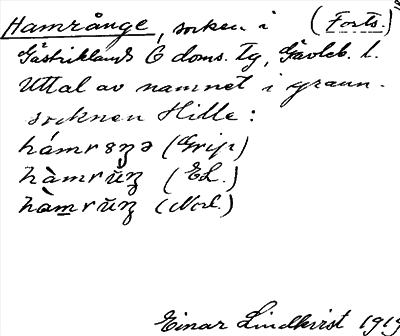 Hamrånge, socken i (Forts.)
Gästriklands Ö doms. Tg, Gävleb. l.
Uttal av namnet i grann-
socknen Hille:
hámrꞷŋə (Grip)
hàmrŭŋ (EL.)
hàmrŭŋ (Norl.)
Einar Lindkvist 1919